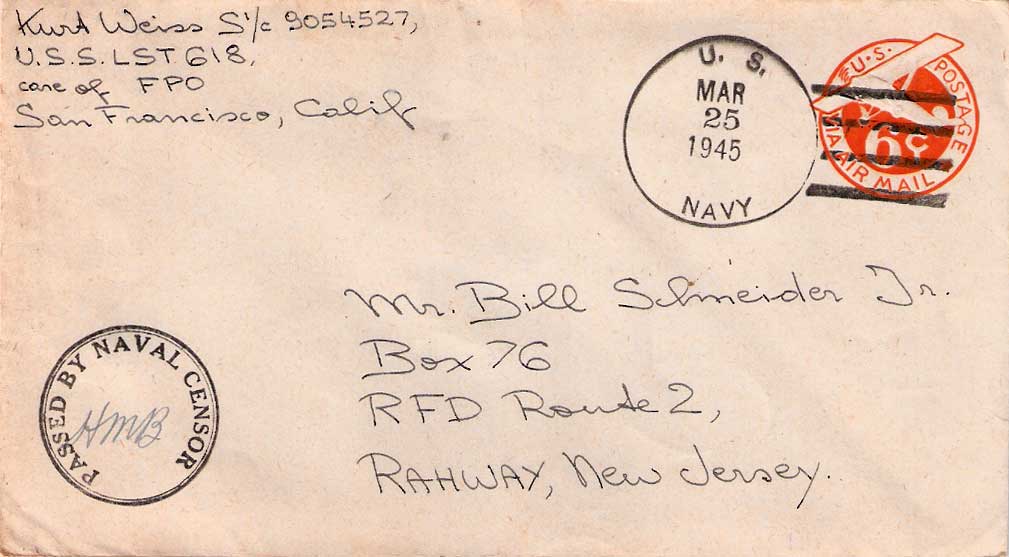 Kurt Weiss S1/c 9054527,
U.S.S. LST 618,
care of FPO
San Francisco, Calif
U. S.
MAR
25
1945
NAVY
U.S. POSTAGE
6¢
VIA AIR MAIL
Mr. Bill Schneider Jr.
Box 76
RFD Route 2,
RAHWAY, New Jersey.
PASSED BY NAVAL CENSOR
HMB